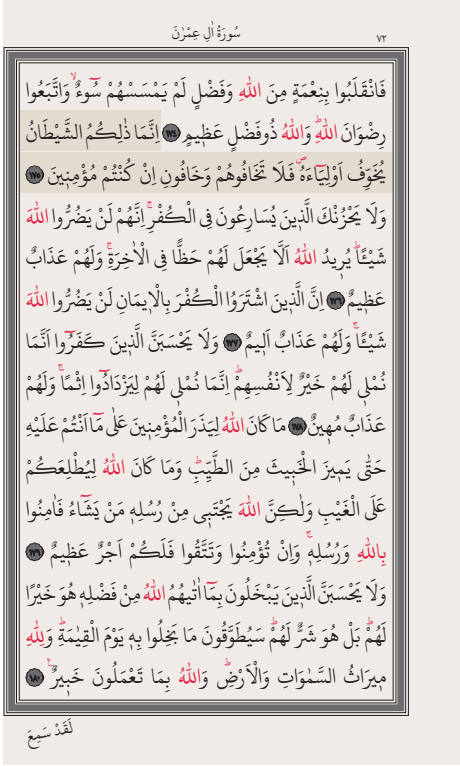 سُورَةُ اٰلِ عِمْرٰنَ
٧٢
فَانْقَلَبُوا بِنِعْمَةٍ مِنَ اللّٰهِ وَفَضْلٍ لَمْ يَمْسَسْهُمْ سُٓوءٌۙ وَاتَّبَعُوا
رِضْوَانَ اللّٰهِۜ وَاللّٰهُ ذُوفَضْلٍ عَظِيمٍ ﴿١٧٤﴾ اِنَّمَا ذٰلِكُمُ الشَّيْطَانُ
يُخَوِّفُ اَوْلِيَٓاءَهُۖ فَلَا تَخَافُوهُمْ وَخَافُونِ اِنْ كُنْتُمْ مُؤْمِنِينَ ﴿١٧٥﴾
وَلَا يَحْزُنْكَ الَّذِينَ يُسَارِعُونَ فِي الْكُفْرِۚ اِنَّهُمْ لَنْ يَضُرُّوا اللّٰهَ
شَيْـًٔاۜ يُرِيدُ اللّٰهُ اَلَّا يَجْعَلَ لَهُمْ حَظًّا فِي الْاٰخِرَةِۚ وَلَهُمْ عَذَابٌ
عَظِيمٌ ﴿١٧٦﴾ اِنَّ الَّذِينَ اشْتَرَوُا الْكُفْرَ بِالْاِيمَانِ لَنْ يَضُرُّوا اللّٰهَ
شَيْـًٔاۚ وَلَهُمْ عَذَابٌ اَلِيمٌ ﴿١٧٧﴾ وَلَا يَحْسَبَنَّ الَّذِينَ كَفَرُٓوا اَنَّمَا
نُمْلِي لَهُمْ خَيْرٌ لِاَنْفُسِهِمْۜ اِنَّمَا نُمْلِي لَهُمْ لِيَزْدَادُٓوا اِثْمًاۚ وَلَهُمْ
عَذَابٌ مُهِينٌ ﴿١٧٨﴾ مَا كَانَ اللّٰهُ لِيَذَرَ الْمُؤْمِنِينَ عَلٰى مَٓا اَنْتُمْ عَلَيْهِ
حَتّٰى يَمِيزَ الْخَبِيثَ مِنَ الطَّيِّبِۜ وَمَا كَانَ اللّٰهُ لِيُطْلِعَكُمْ
عَلَى الْغَيْبِ وَلٰكِنَّ اللّٰهَ يَجْتَبِي مِنْ رُسُلِهِ مَنْ يَشَٓاءُ فَاٰمِنُوا
بِاللّٰهِ وَرُسُلِهِۚ وَاِنْ تُؤْمِنُوا وَتَتَّقُوا فَلَكُمْ اَجْرٌ عَظِيمٌ ﴿١٧٩﴾
وَلَا يَحْسَبَنَّ الَّذِينَ يَبْخَلُونَ بِمَٓا اٰتٰيهُمُ اللّٰهُ مِنْ فَضْلِهِ هُوَ خَيْرًا
لَهُمْۜ بَلْ هُوَ شَرٌّ لَهُمْۜ سَيُطَوَّقُونَ مَا بَخِلُوا بِهِ يَوْمَ الْقِيٰمَةِۜ وَلِلّٰهِ
مِيرَاثُ السَّمٰوَاتِ وَالْاَرْضِۜ وَاللّٰهُ بِمَا تَعْمَلُونَ خَبِيرٌ۟ ﴿١٨٠﴾
لَقَدْ سَمِعَ